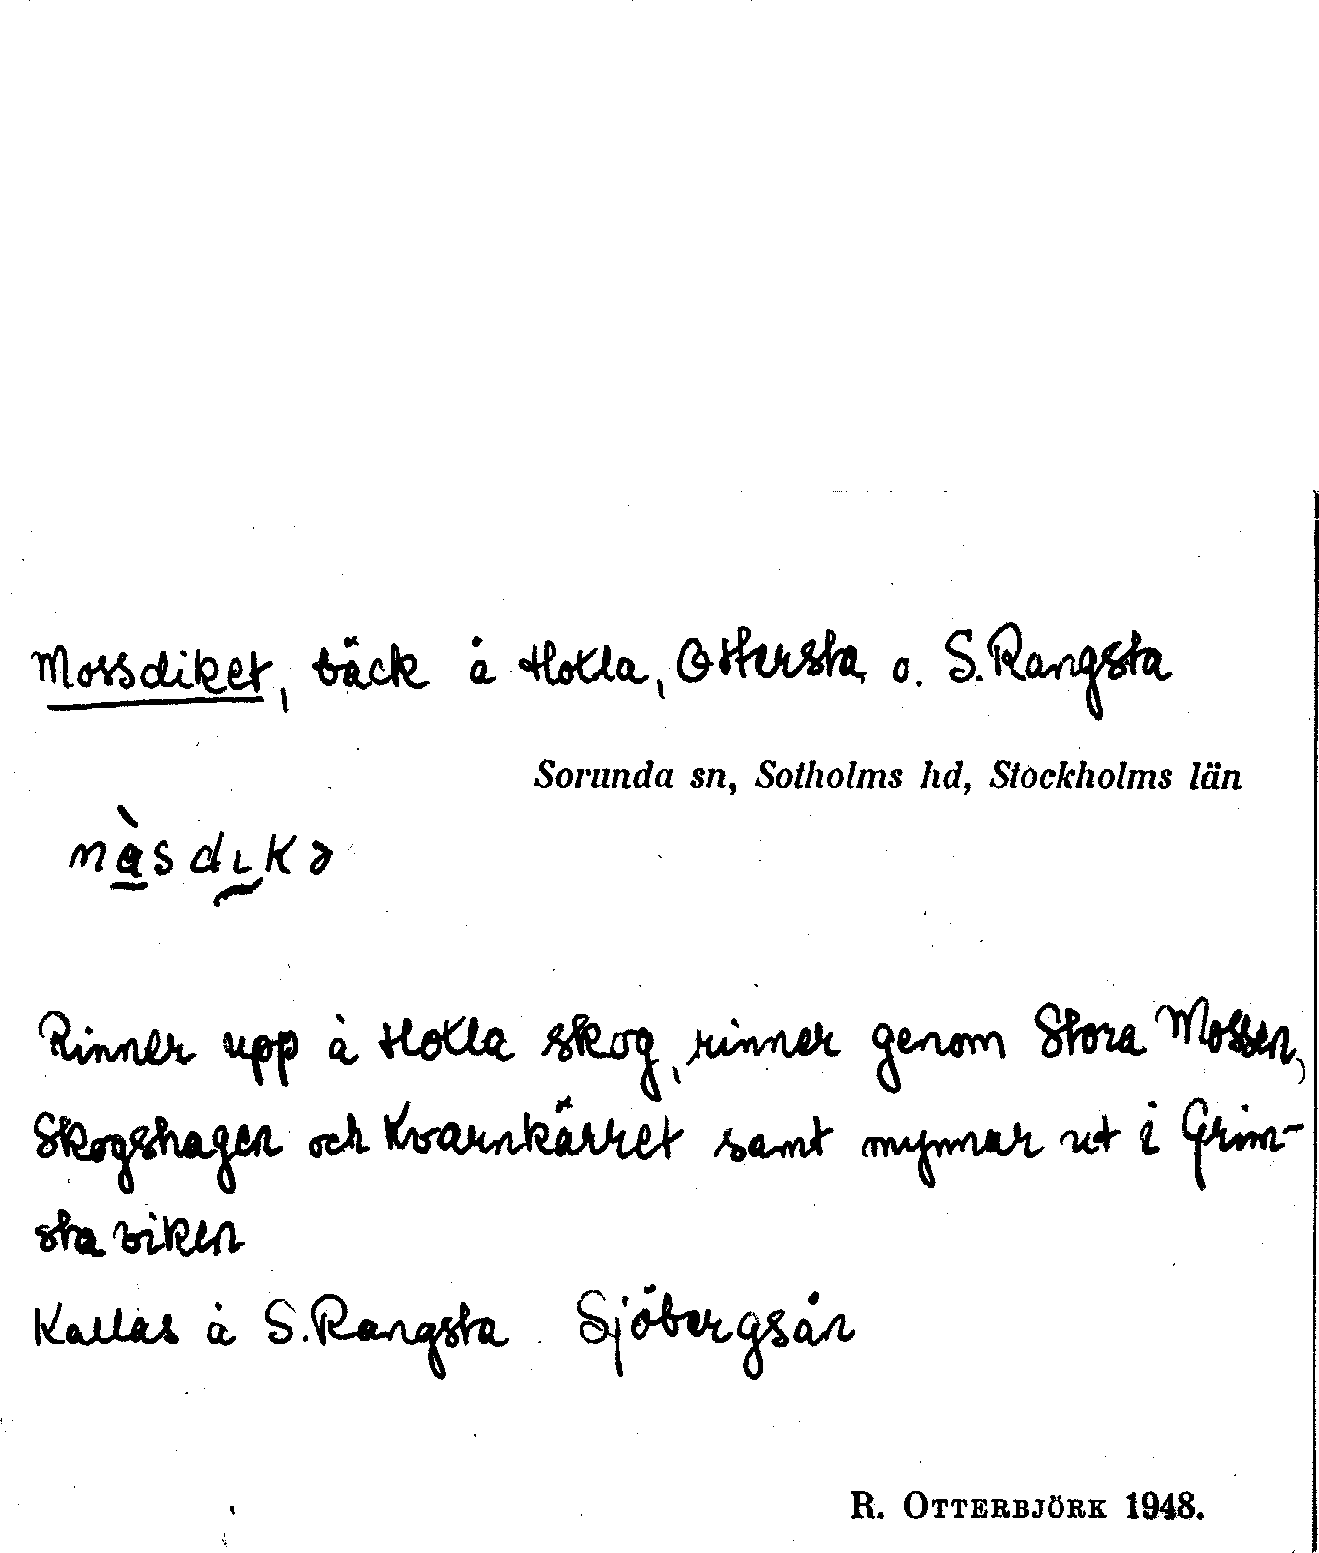 Mossdiket, bäck å Hoxla, Ottersta o. S. Rangsta
Sorunda sn, Sotholms hd, Stockholms län
Rinner upp å Hoxla skog, rinner genom Stora Mossen,
Skogshagen och Kvarnkärret samt mynnar ut i Grim-
staviken
Kallas å S. Rangsta Sjöbergsån
R. OTTERBJÖRK 1948.